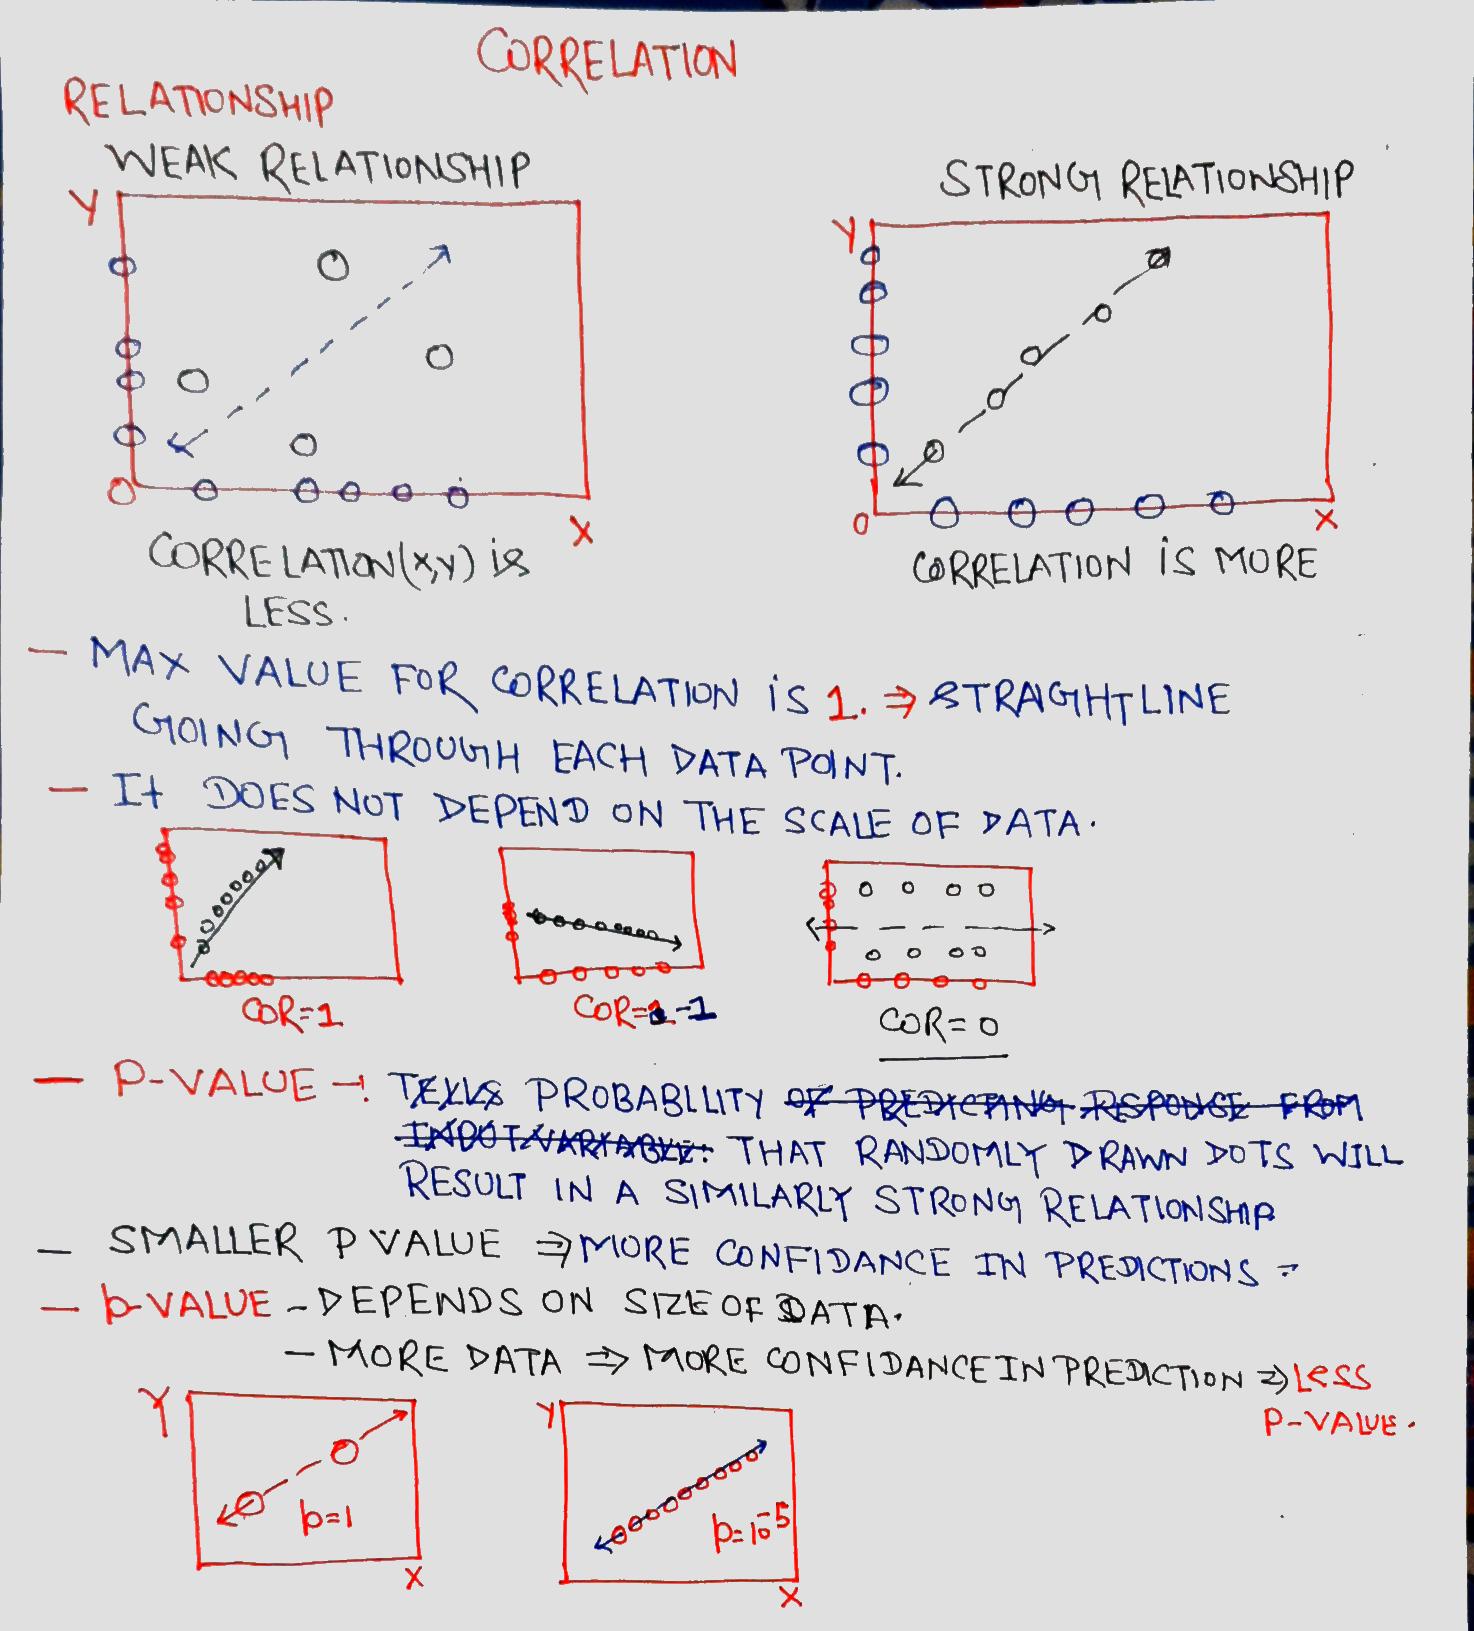 CORRELATION
RELATIONSHIP
WEAK RELATIONSHIP
STRONG RELATIONSHIP
Y
Y
O
X
O
X
CORRELATION(X,Y) is
LESS.
CORRELATION is MORE
- MAX VALUE FOR CORRELATION is 1. ⇒ STRAIGHTLINE
GOING THROUGH EACH DATA POINT.
- It DOES NOT DEPEND ON THE SCALE OF DATA.
COR=1
COR=-1
COR=0
- P-VALUE →: TELLS PROBABLLITY OF PREDICTING RESPONSE FROM
INPUT VARIABLE: THAT RANDOMLY DRAWN DOTS WILL
RESULT IN A SIMILARLY STRONG RELATIONSHIP
- SMALLER P VALUE ⇒ MORE CONFIDANCE IN PREDICTIONS -
- p-VALUE - DEPENDS ON SIZE OF DATA.
- MORE DATA ⇒ MORE CONFIDANCE IN PREDICTION ⇒ LESS
P-VALUE.
Y
p=1
X
Y
p=10-5
X